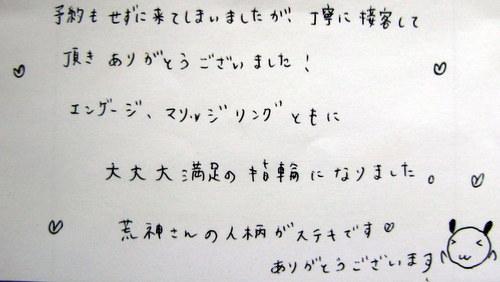 予約もせずに来てしまいましたが、丁寧に接客して
頂きありがとうございました！
エンゲージ、マリッジリングともに
大大大満足の指輪になりました。
荒神さんの人柄がステキです♡
ありがとうございます